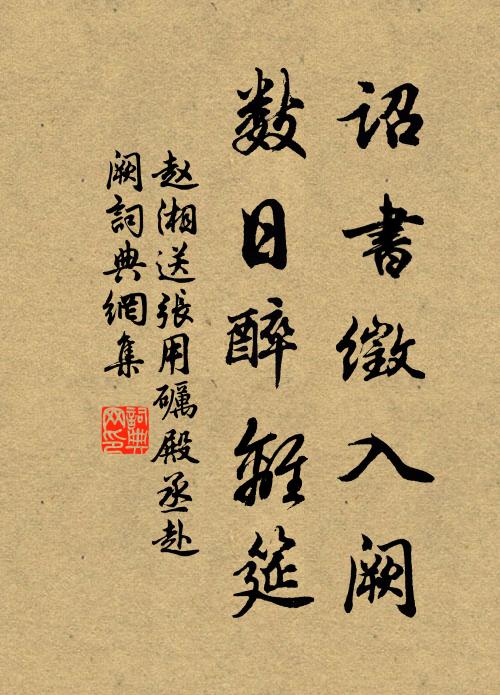 詔書徵入闕
數日醉離筵
赵湘送張用礪殿丞赴
闕詞典網集
詞典网印